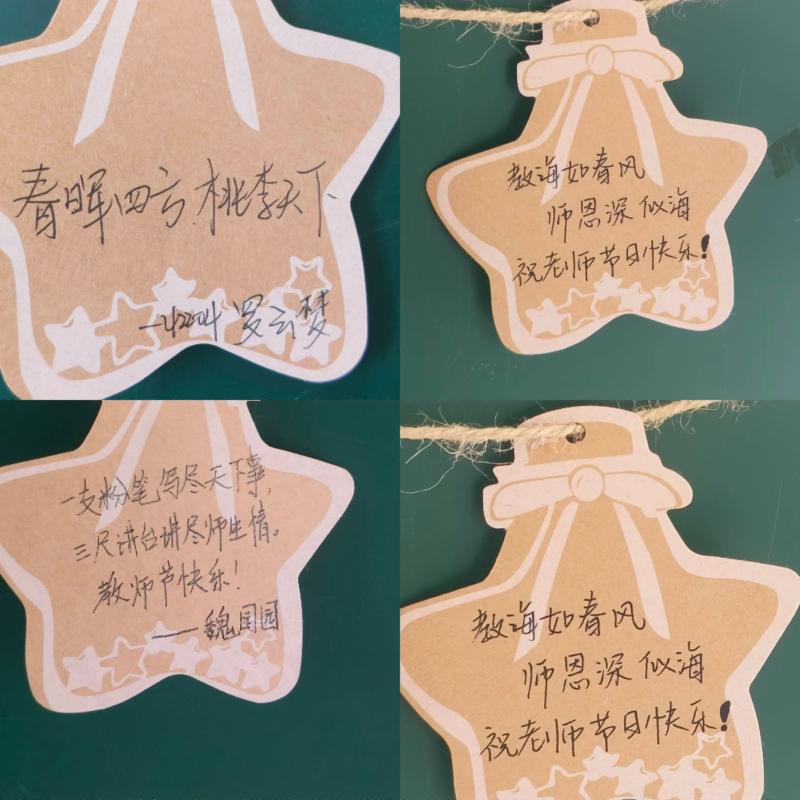 春晖四方.桃李天下
—42204 罗云梦
教海如春风
师恩深似海
祝老师节日快乐!
一支粉笔写尽天下事,
三尺讲台讲尽师生情。
教师节快乐!
——魏国园
教海如春风
师恩深似海
祝老师节日快乐!